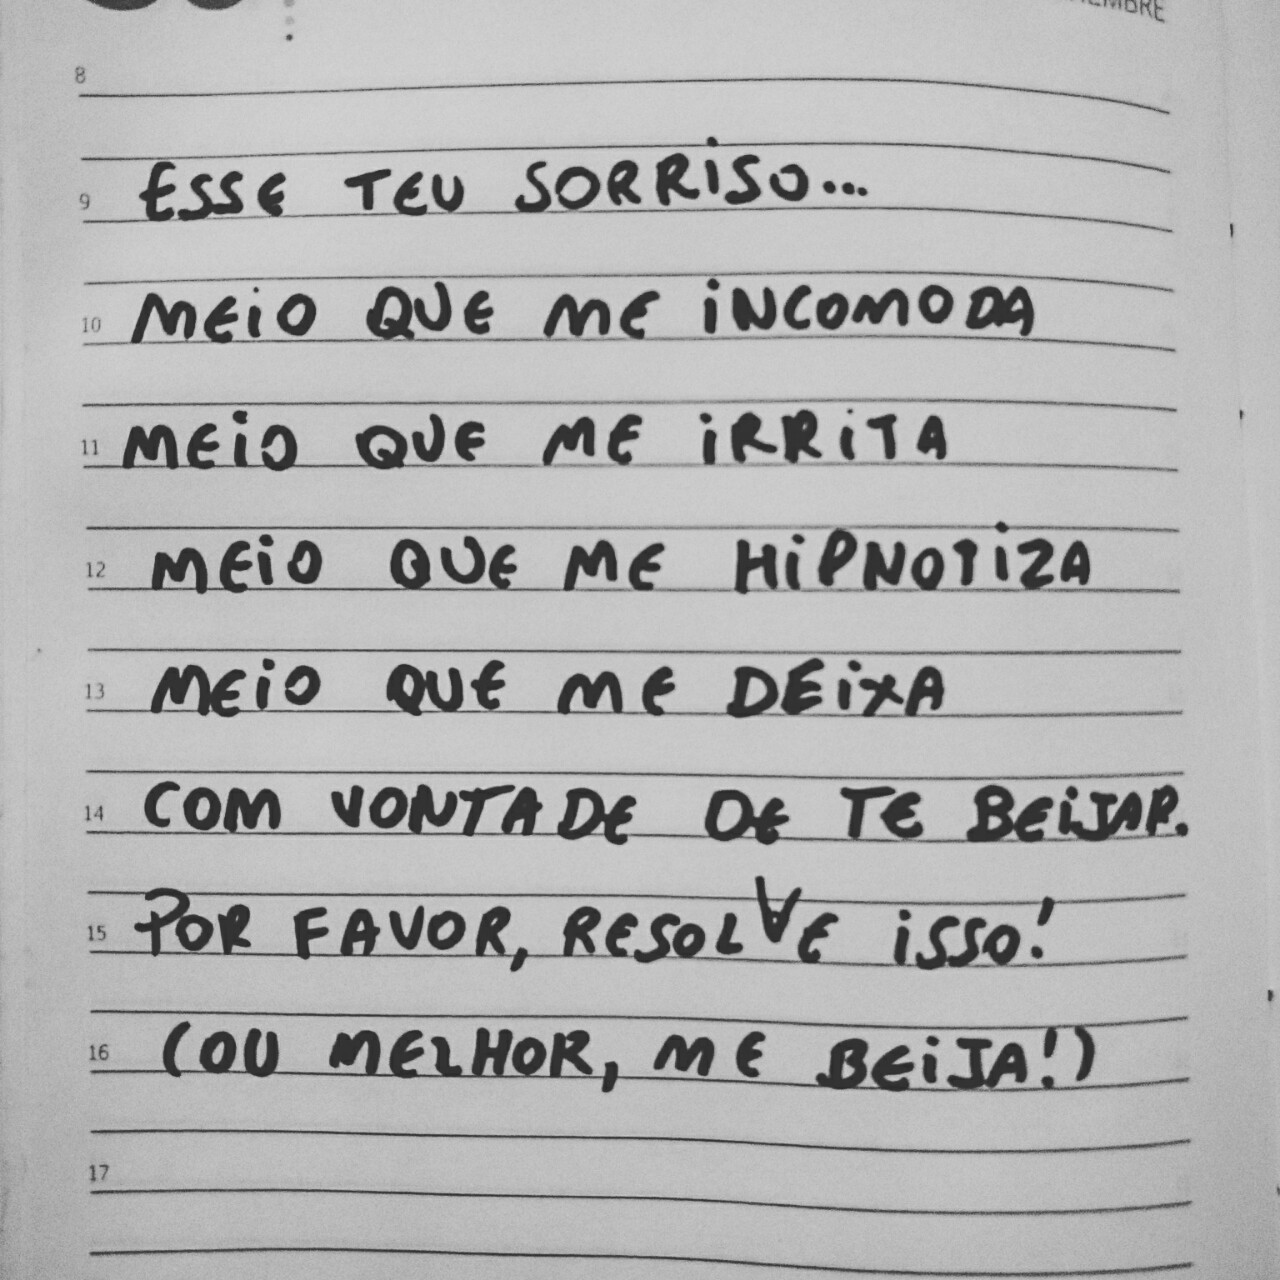 8
9 ESSE TEU SORRISO...
10 MEIO QUE ME INCOMODA
11 MEIO QUE ME IRRITA
12 MEIO QUE ME HIPNOTIZA
13 MEIO QUE ME DEIXA
14 COM VONTADE DE TE BEIJAR.
15 POR FAVOR, RESOLVE ISSO!
16 (OU MELHOR, ME BEIJA!)
17